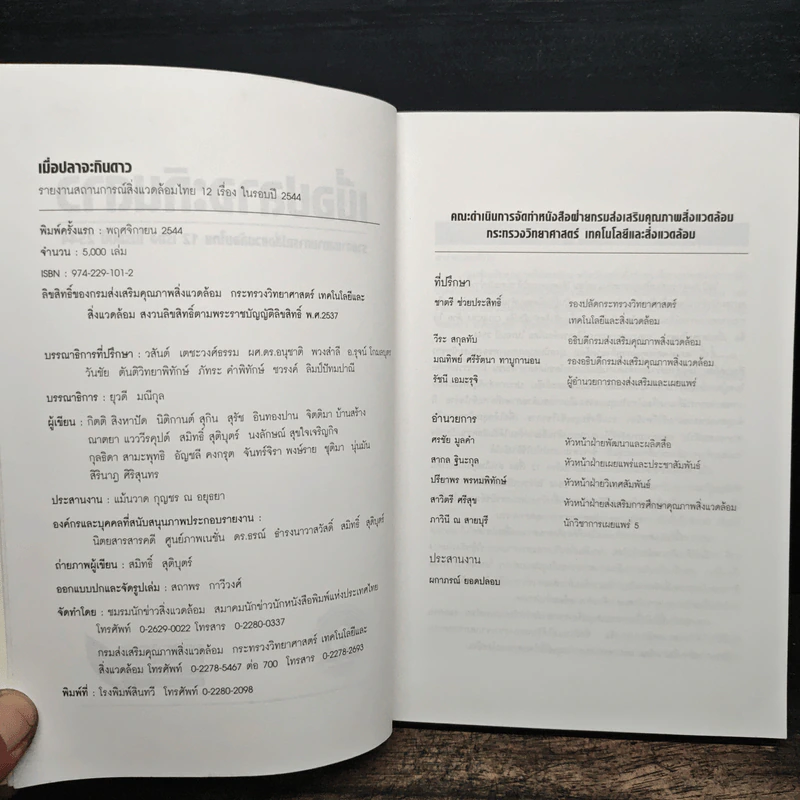 เมื่อปลาจะกินดาว
รายงานสถานการณ์สิ่งแวดล้อมไทย 12 เรื่อง ในรอบปี 2544
พิมพ์ครั้งแรก : พฤศจิกายน 2544
จำนวน : 5,000 เล่ม
ISBN : 974-229-101-2
ลิขสิทธิ์ของกรมส่งเสริมคุณภาพสิ่งแวดล้อม กระทรวงวิทยาศาสตร์ เทคโนโลยีและ
สิ่งแวดล้อม สงวนลิขสิทธิ์ตามพระราชบัญญัติลิขสิทธิ์ พ.ศ.2537
บรรณาธิการที่ปรึกษา : วสันต์ เตชะวงศ์ธรรม ผศ.ดร.อนุชาติ พวงสำลี อ.รุจน์ โกมลบุตร
วันชัย ตันติวิทยาพิทักษ์ ภัทระ คำพิทักษ์ ชวรงค์ ลิมป์ปัทมปาณี
บรรณาธิการ : ยุวดี มณีกุล
ผู้เขียน : กิตติ สิงหาปัด นิติกานต์ สุกิน สุรัช อินทองปาน จิตติมา บ้านสร้าง
ณาตยา แวววีรคุปต์ สมิทธิ์ สุติบุตร์ นงลักษณ์ สุขใจเจริญกิจ
กุลธิดา สามะพุทธิ อัญชลี คงกรุต จันทร์จิรา พงษ์ราย ชุติมา นุ่นมัน
สิรินาฏ ศิริสุนทร
ประสานงาน : แม้นวาด กุญชร ณ อยุธยา
องค์กรและบุคคลที่สนับสนุนภาพประกอบรายงาน :
นิตยสารสารคดี ศูนย์ภาพเนชั่น ดร.ธรณ์ ธำรงนาวาสวัสดิ์ สมิทธิ์ สุติบุตร์
ถ่ายภาพผู้เขียน : สมิทธิ์ สุติบุตร์
ออกแบบปกและจัดรูปเล่ม : สถาพร กาวีวงศ์
จัดทำโดย : ชมรมนักข่าวสิ่งแวดล้อม สมาคมนักข่าวนักหนังสือพิมพ์แห่งประเทศไทย
โทรศัพท์ 0-2629-0022 โทรสาร 0-2280-0337
กรมส่งเสริมคุณภาพสิ่งแวดล้อม กระทรวงวิทยาศาสตร์ เทคโนโลยีและ
สิ่งแวดล้อม โทรศัพท์ 0-2278-5467 ต่อ 700 โทรสาร 0-2278-2693
พิมพ์ที่ : โรงพิมพ์สินทวี โทรศัพท์ 0-2280-2098
คณะดำเนินการจัดทำหนังสือฝ่ายกรมส่งเสริมคุณภาพสิ่งแวดล้อม
กระทรวงวิทยาศาสตร์ เทคโนโลยีและสิ่งแวดล้อม
ที่ปรึกษา
ชาตรี ช่วยประสิทธิ์ รองปลัดกระทรวงวิทยาศาสตร์
เทคโนโลยีและสิ่งแวดล้อม
วีระ สกุลทับ อธิบดีกรมส่งเสริมคุณภาพสิ่งแวดล้อม
มณทิพย์ ศรีรัตนา ทาบูกานอน รองอธิบดีกรมส่งเสริมคุณภาพสิ่งแวดล้อม
รัชนี เอมะรุจิ ผู้อำนวยการกองส่งเสริมและเผยแพร่
อำนวยการ
ศรชัย มูลคำ หัวหน้าฝ่ายพัฒนาและผลิตสื่อ
สากล ฐินะกุล หัวหน้าฝ่ายเผยแพร่และประชาสัมพันธ์
ปรียาพร พรหมพิทักษ์ หัวหน้าฝ่ายวิเทศสัมพันธ์
สาวิตรี ศรีสุข หัวหน้าฝ่ายส่งเสริมการศึกษาคุณภาพสิ่งแวดล้อม
ภาวินี ณ สายบุรี นักวิชาการเผยแพร่ 5
ประสานงาน
ผกาภรณ์ ยอดปลอบ